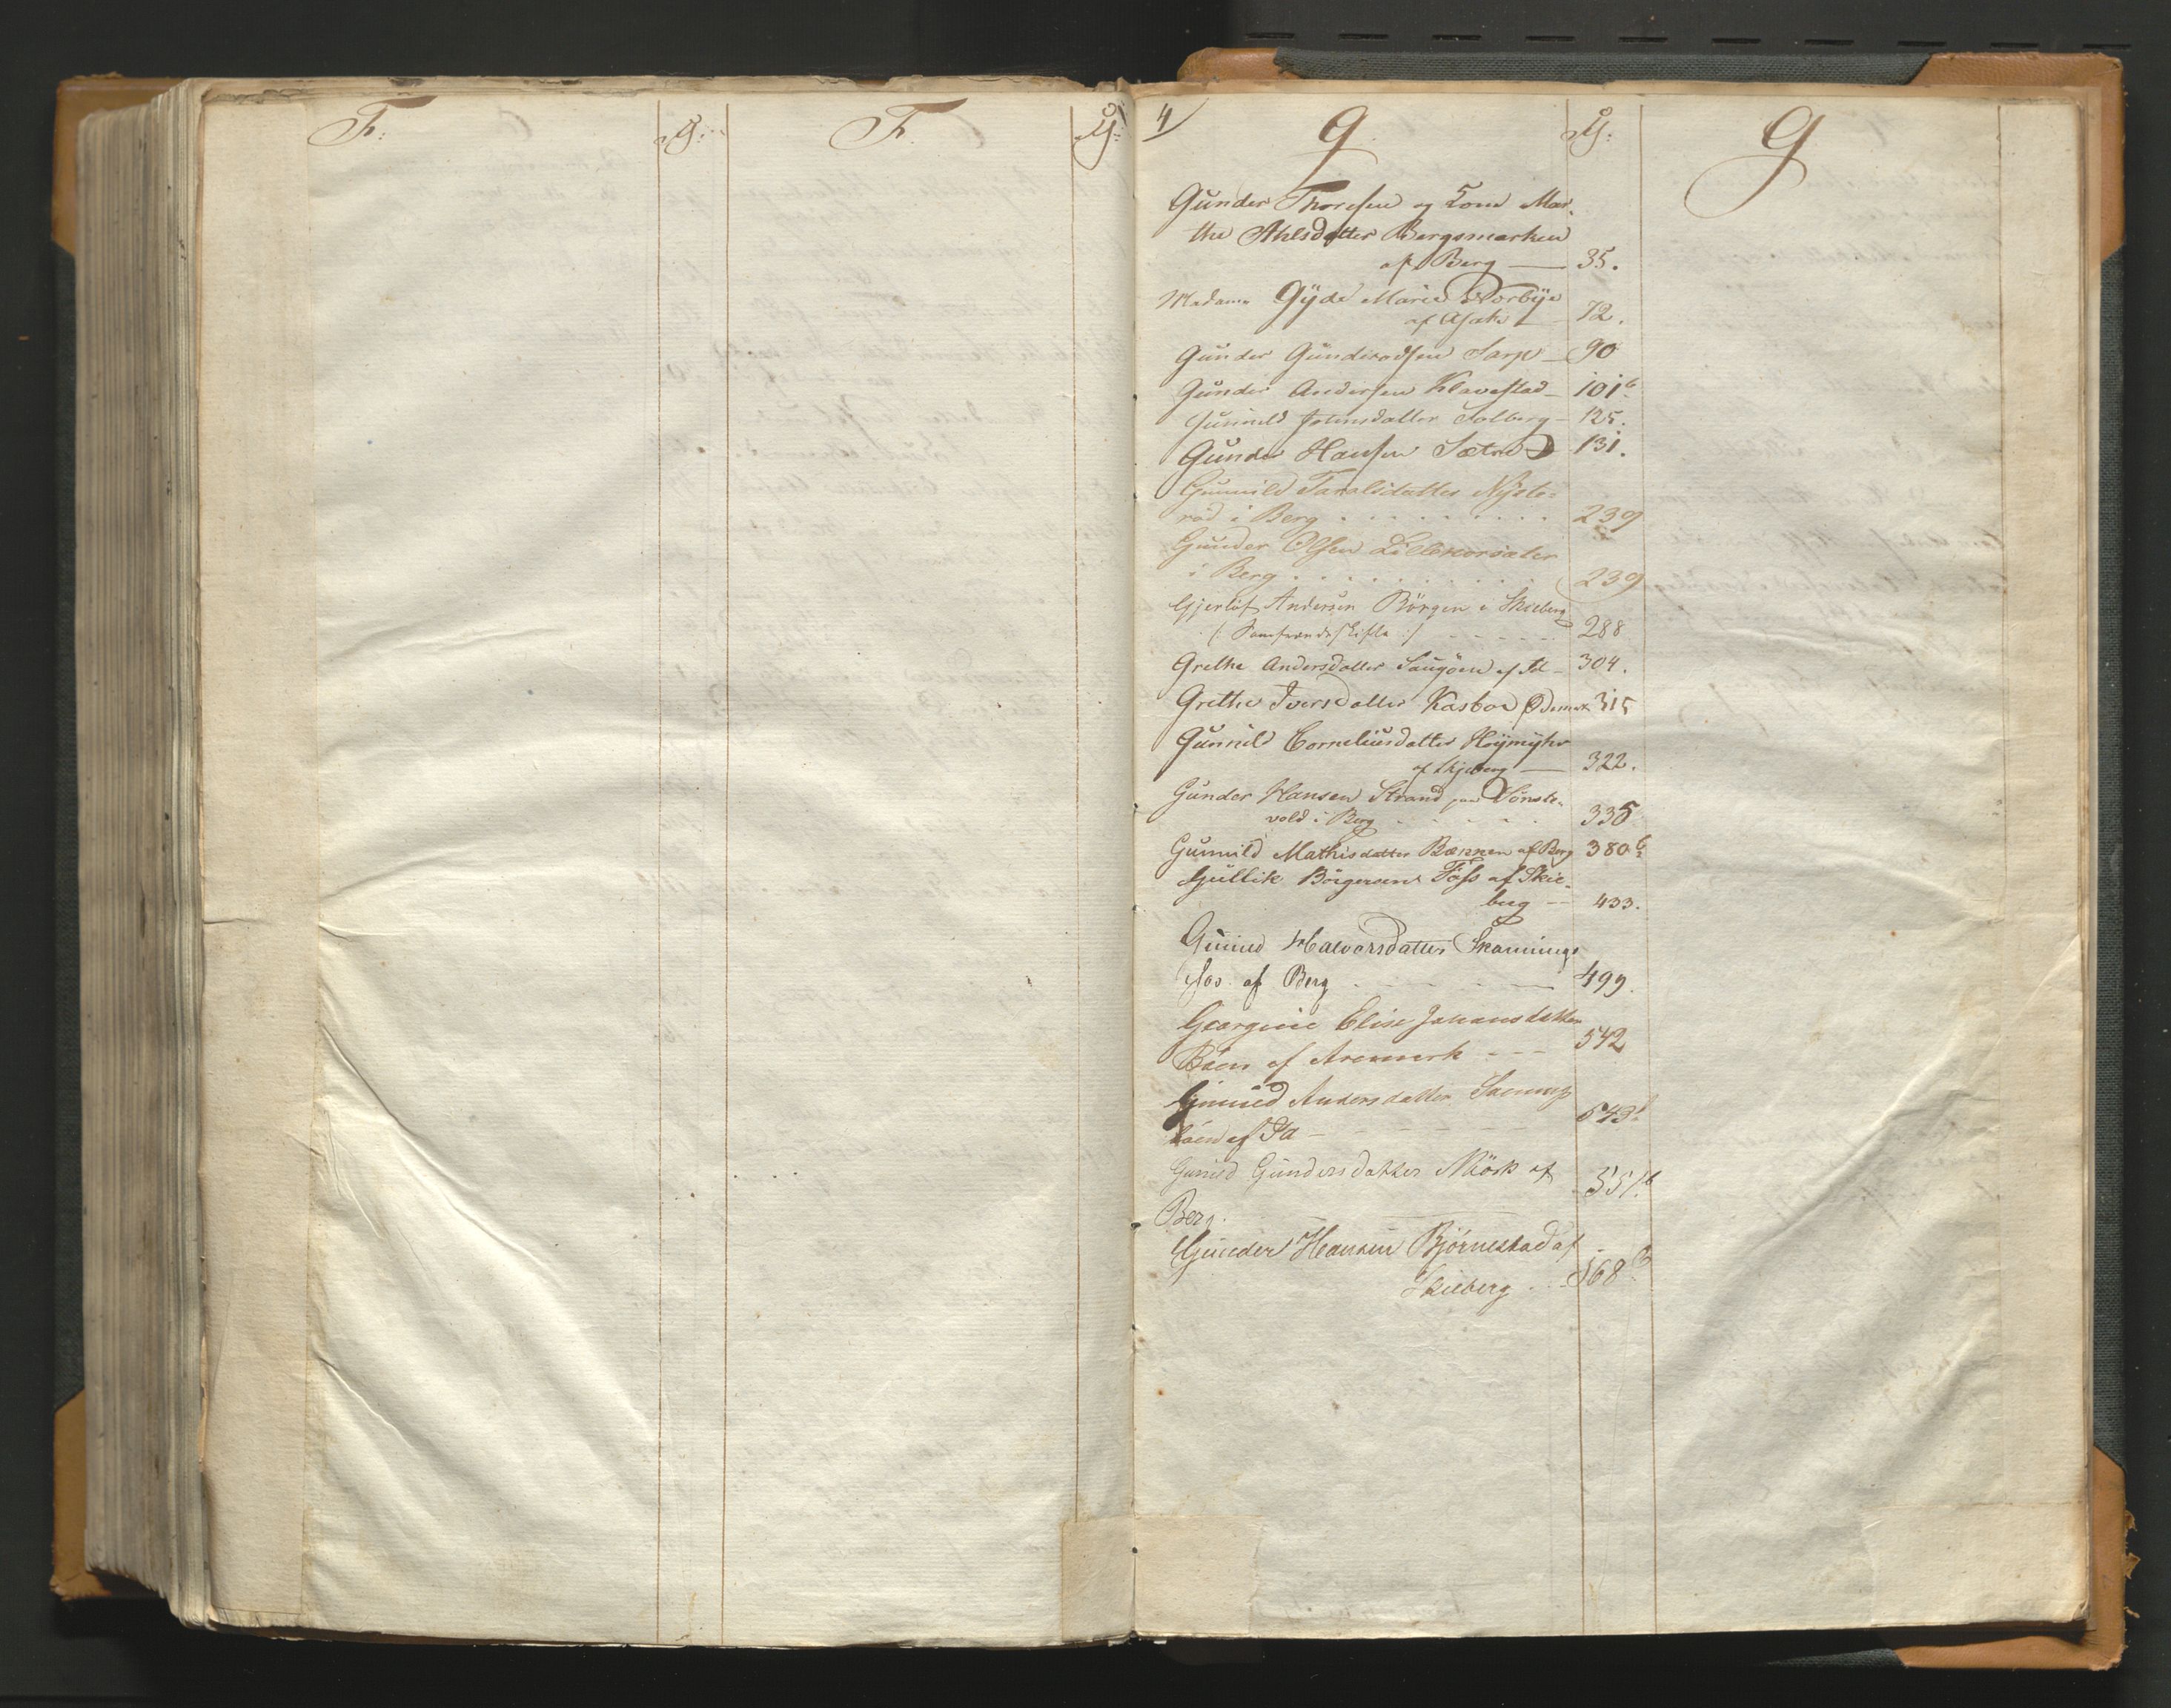 F:
F.
4
G
G
Gunder Thoresen og Kone Mar-
the Ahlsdatter Bergsmarken
af Berg — 35.
Madame Gyde Marie Norbye
af Asak — 72.
Gunder Gundersen Sarp — 90
Gunder Andersen Klavestad — 101b
Gunnild Johnsdatter Solberg — 125.
Gunder Hansen Sætre 131.
Gunnild Taraldsdatter Nyste-
röd i Berg . . . . . . . . 239
Gunder Olsen Lillekorsæter
i Berg . . . . . . . . 239
Gjerlöf Andersen Börgen i Skieberg
/: Samfrændeskifte :/ - - - - - 288
Grethe Andersdatter Saugöen af Id — 304.
Grethe Iversdatter Kasboe Ødemk 315
Gunnild Corneliusdatter Höymyhr
af Skjeberg — 322.
Gunder Hansen Strand paa Tönste-
vold i Berg - - - - - 335
Gunnild Mathisdatter Bærmen af Berg 380b
Gullik Börgersen Foss af Skie-
berg — 433.
Gunild Halvorsdatter Skannings
foss af Berg - - - - - 499.
Georgine Elise Johansdatter
Böen af Aremark - - - 542
Gunild Andersdatter
af Id - - - - - - 543b
Gunild Gundersdatter Mörk af
Berg. 551b
Gunder Hansen Björnestad af
Skieberg . . 568b